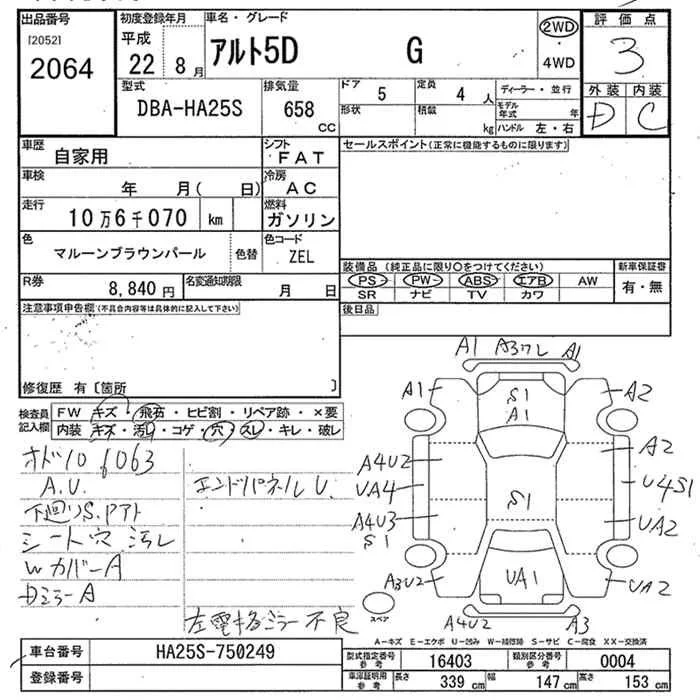 出品番号
[2052]
2064
初度登録年月
平成
22 8月
車名・グレード
アルト5D G
2WD
・
4WD
評価点
3
外装 内装
D C
型式
DBA-HA25S
排気量
658
CC
ドア 5
形状
定員 4 人
積載 kg
ディーラー・並行
モデル年式 年
ハンドル 左・右
車歴
自家用
シフト
FAT
セールスポイント(正常に機能するものに限ります)
車検
年 月( 日)
冷房
AC
走行
10万6千070 km
燃料
ガソリン
色
マルーンブラウンパール
色替
色コード
ZEL
装備品(純正品に限り○をつけてください)
新車保証書
PS PW ABS エアB AW
SR ナビ TV カワ
有・無
R券
8,840円
名変通知期限
月 日
後日品
注意事項申告欄(不具合内容等は具体的に記入して下さい)
修復歴 有〔箇所 〕
検査員記入欄
FW キズ・飛石・ヒビ割・リペア跡・×要
内装 キズ・汚れ・コゲ・穴・スレ・キレ・破レ
オド106063
A.U.
下廻りS.Pアト
シート穴 汚レ
WカバーA
DミラーA
エンドパネルU.
左電格ミラー不良
A1 A3ワレ A1
A1 S1 A1 A2
A4U2 A2
UA4 S1 U4S1
A4U3 UA2
S1
A3U2 UA1 UA2
スペア
A4U2 A3
A-キズ E-エクボ U-凹み W-補修跡 S-サビ C-腐食 XX-交換済
車台番号
HA25S-750249
登録番号
型式指定番号
参考
16403
類別区分番号
参考
0004
車庫証明用
参考
長さ 339 cm
幅 147 cm
高さ 153 cm